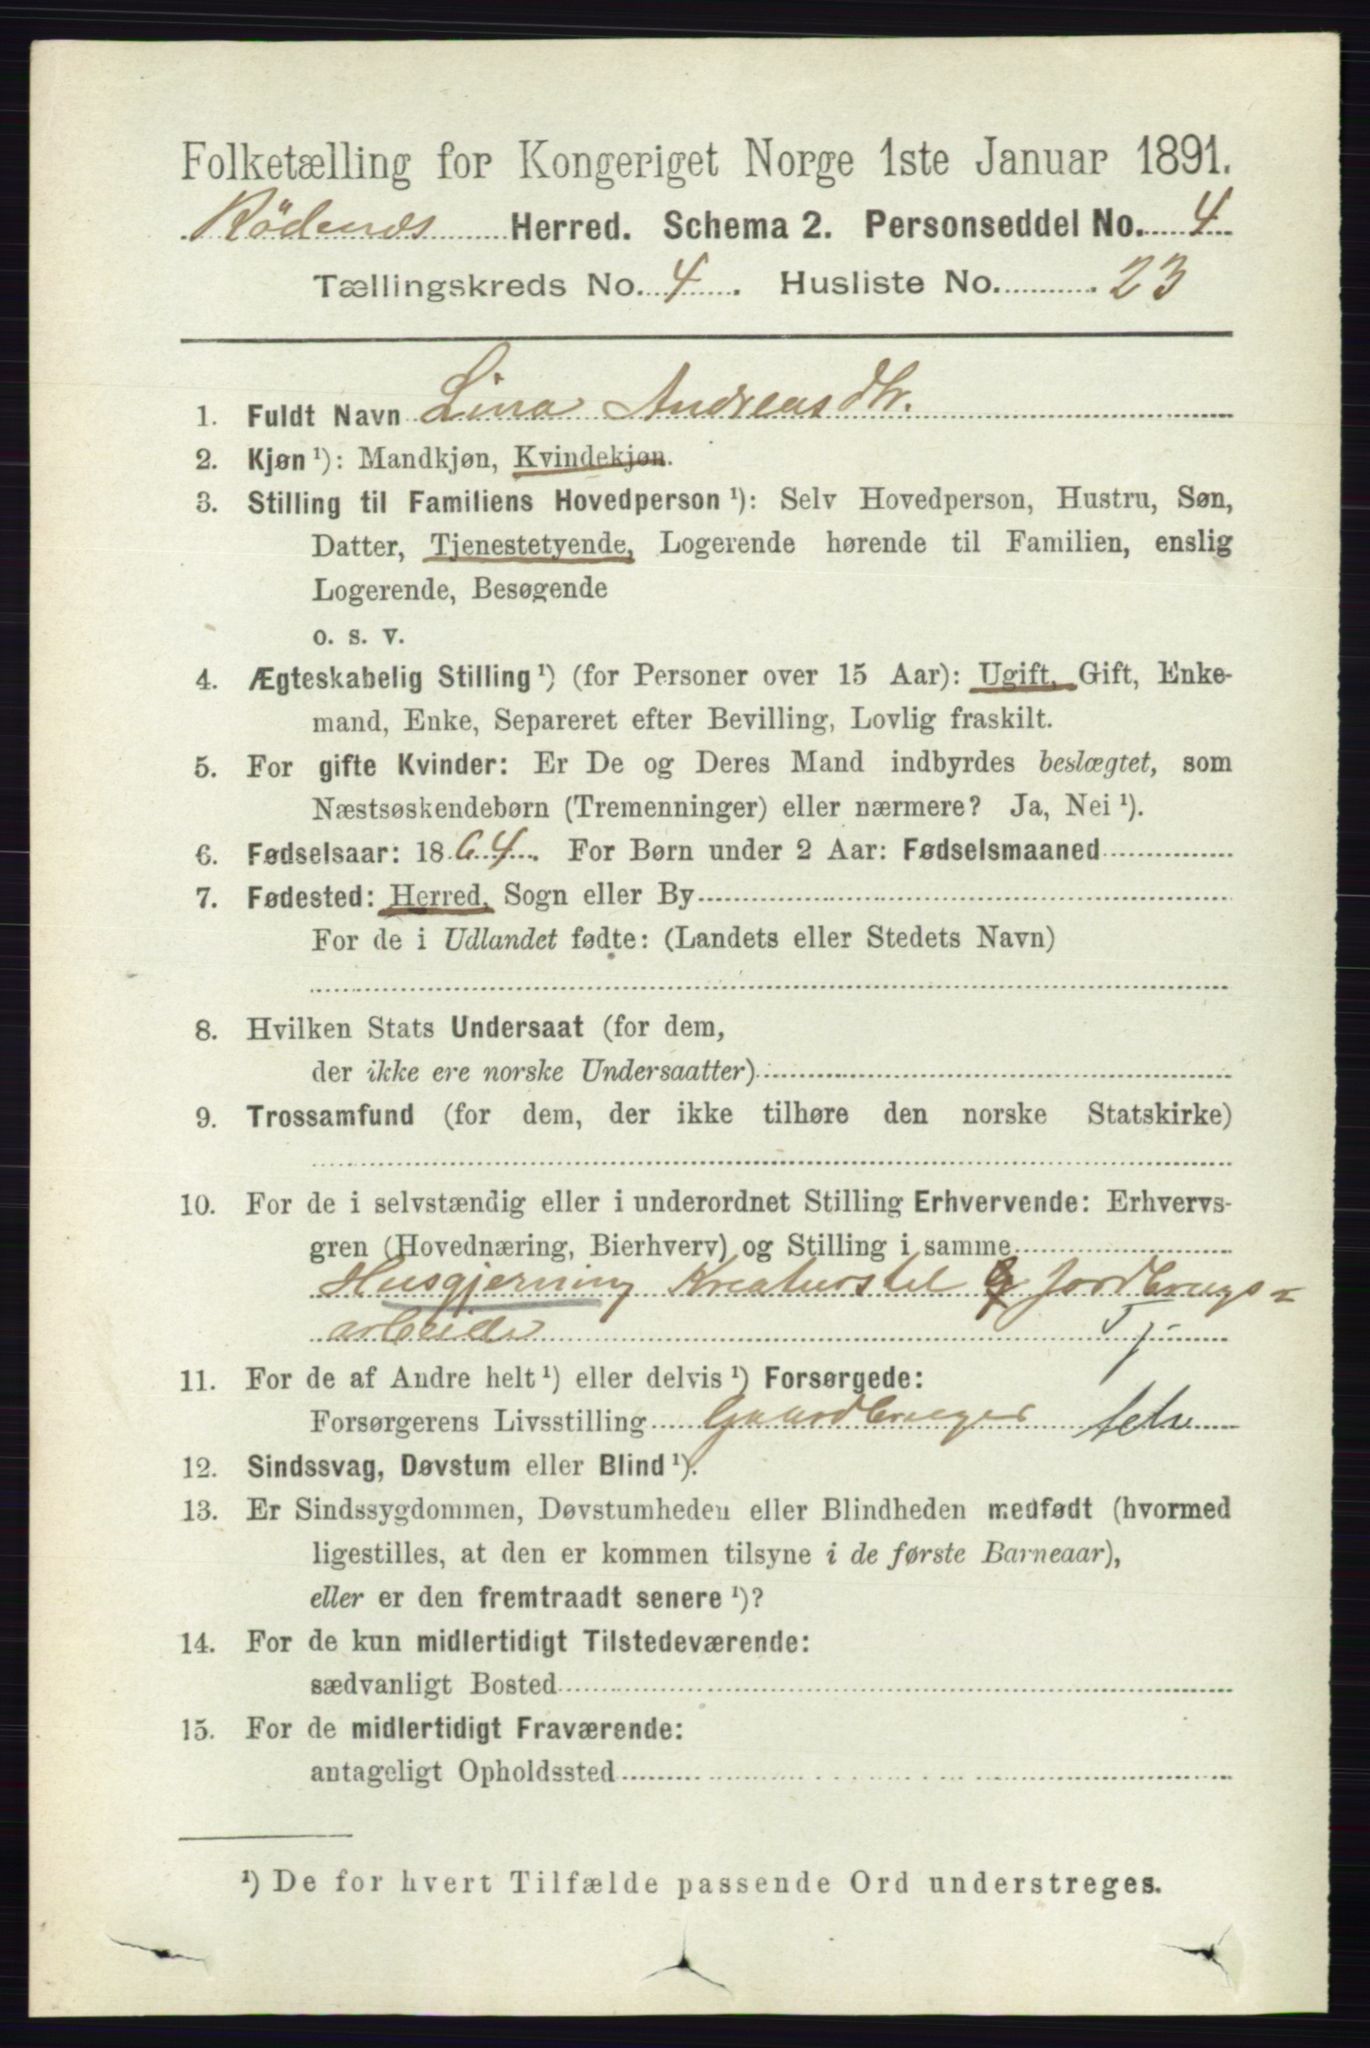 Folketælling for Kongeriget Norge 1ste Januar 1891.
Rödenes Herred. Schema 2. Personseddel No. 4
Tællingskreds No. 4. Husliste No. 23
1. Fuldt Navn Lina Andreasdtr.
2. Kjøn ¹): Mandkjøn, Kvindekjøn.
3. Stilling til Familiens Hovedperson ¹): Selv Hovedperson, Hustru, Søn,
Datter, Tjenestetyende, Logerende hørende til Familien, enslig
Logerende, Besøgende
o. s. v.
4. Ægteskabelig Stilling ¹) (for Personer over 15 Aar): Ugift, Gift, Enke-
mand, Enke, Separeret efter Bevilling, Lovlig fraskilt.
5. For gifte Kvinder: Er De og Deres Mand indbyrdes beslægtet, som
Næstsøskendebørn (Tremenninger) eller nærmere? Ja, Nei ¹).
6. Fødselsaar: 1864. For Børn under 2 Aar: Fødselsmaaned
7. Fødested: Herred, Sogn eller By
For de i Udlandet fødte: (Landets eller Stedets Navn)
8. Hvilken Stats Undersaat (for dem,
der ikke ere norske Undersaatter)
9. Trossamfund (for dem, der ikke tilhøre den norske Statskirke)
10. For de i selvstændig eller i underordnet Stilling Erhvervende: Erhvervs-
gren (Hovednæring, Bierhverv) og Stilling i samme
Husgjerning Kreaturstel & Jordbrugs=
arbeide Tj.
11. For de af Andre helt ¹) eller delvis ¹) Forsørgede:
Forsørgerens Livsstilling Gaardbruger selv
12. Sindssvag, Døvstum eller Blind ¹).
13. Er Sindssygdommen, Døvstumheden eller Blindheden medfødt (hvormed
ligestilles, at den er kommen tilsyne i de første Barneaar),
eller er den fremtraadt senere ¹)?
14. For de kun midlertidigt Tilstedeværende:
sædvanligt Bosted
15. For de midlertidigt Fraværende:
antageligt Opholdssted
¹) De for hvert Tilfælde passende Ord understreges.